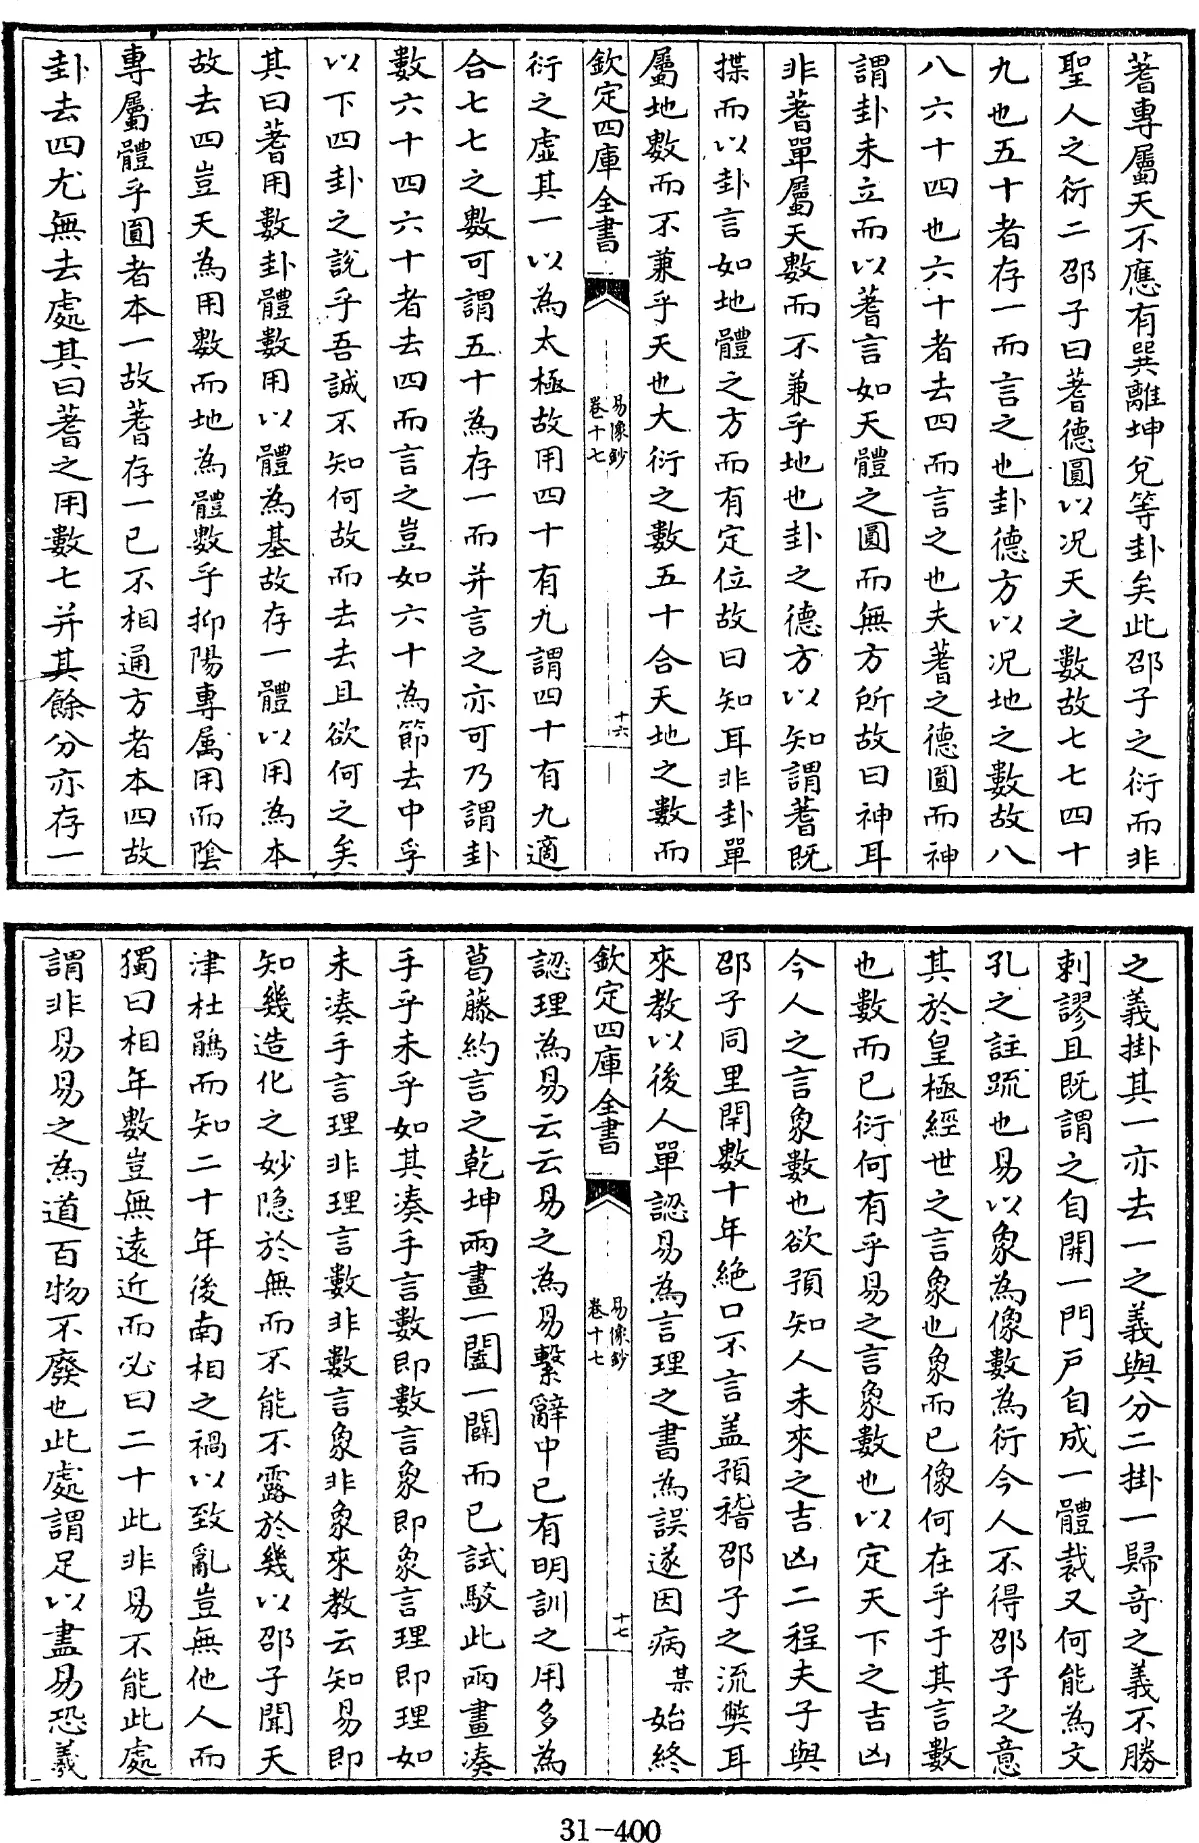 蓍專屬天不應有巽離坤兌等卦矣此邵子之衍而非
聖人之衍二邵子曰蓍德圓以况天之數故七七四十
九也五十者存一而言之也卦德方以况地之數故八
八六十四也六十者去四而言之也夫蓍之德圓而神
謂卦未立而以蓍言如天體之圓而無方所故曰神耳
非蓍單屬天數而不兼乎地也卦之德方以知謂蓍既
揲而以卦言如地體之方而有定位故曰知耳非卦單
屬地數而不兼乎天也大衍之數五十合天地之數而
欽定四庫全書
易像鈔
卷十七
十六
衍之虛其一以為太極故用四十有九謂四十有九適
合七七之數可謂五十為存一而并言之亦可乃謂卦
數六十四六十者去四而言之豈如六十為節去中孚
以下四卦之說乎吾誠不知何故而去去且欲何之矣
其曰蓍用數卦體數用以體為基故存一體以用為本
故去四豈天為用數而地為體數乎抑陽專属用而陰
專屬體乎圓者本一故蓍存一已不相通方者本四故
卦去四尤無去處其曰蓍之用數七并其餘分亦存一
之義掛其一亦去一之義與分二掛一歸奇之義不勝
刺謬且既謂之自開一門戶自成一體裁又何能為文
孔之註疏也易以象為像數為衍今人不得邵子之意
其於皇極經世之言象也象而已像何在乎于其言數
也數而已衍何有乎易之言象數也以定天下之吉凶
今人之言象數也欲預知人未來之吉凶二程夫子與
邵子同里閈數十年絶口不言盖預稽邵子之流獘耳
來教以後人單認易為言理之書為誤遂因病某始終
欽定四庫全書
易像鈔
卷十七
十七
認理為易云云易之為易繫辭中已有明訓之用多為
葛藤約言之乾坤兩畫一闔一闢而已試駁此兩畫湊
手乎未乎如其湊手言數即數言象即象言理即理如
未湊手言理非理言數非數言象非象來教云知易即
知幾造化之妙隱於無而不能不露於幾以邵子聞天
津杜鵑而知二十年後南相之禍以致亂豈無他人而
獨曰相年數豈無遠近而必曰二十此非易不能此處
謂非易易之為道百物不廢也此處謂足以盡易恐羲
31-400